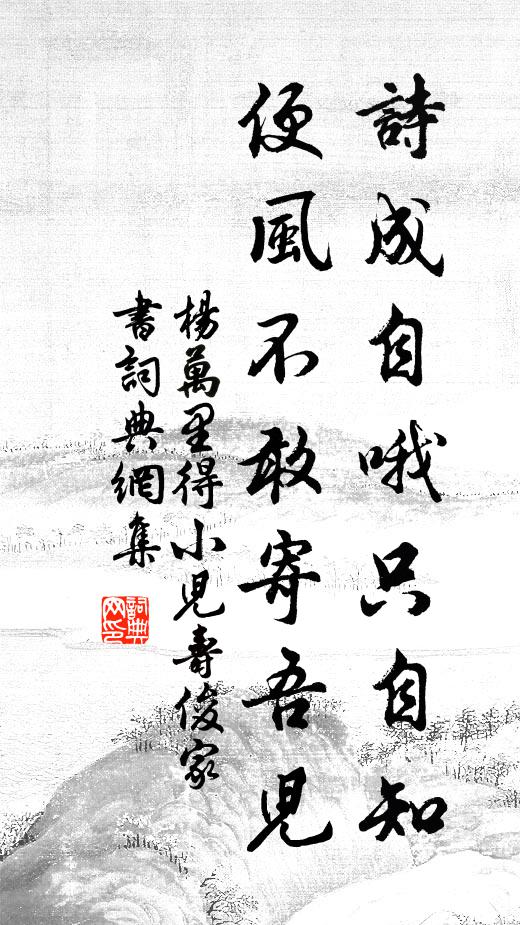 詩成自哦只自知
便風不敢寄吾児
楊萬里得小児壽俊家
書詞典網集
詞典
网印